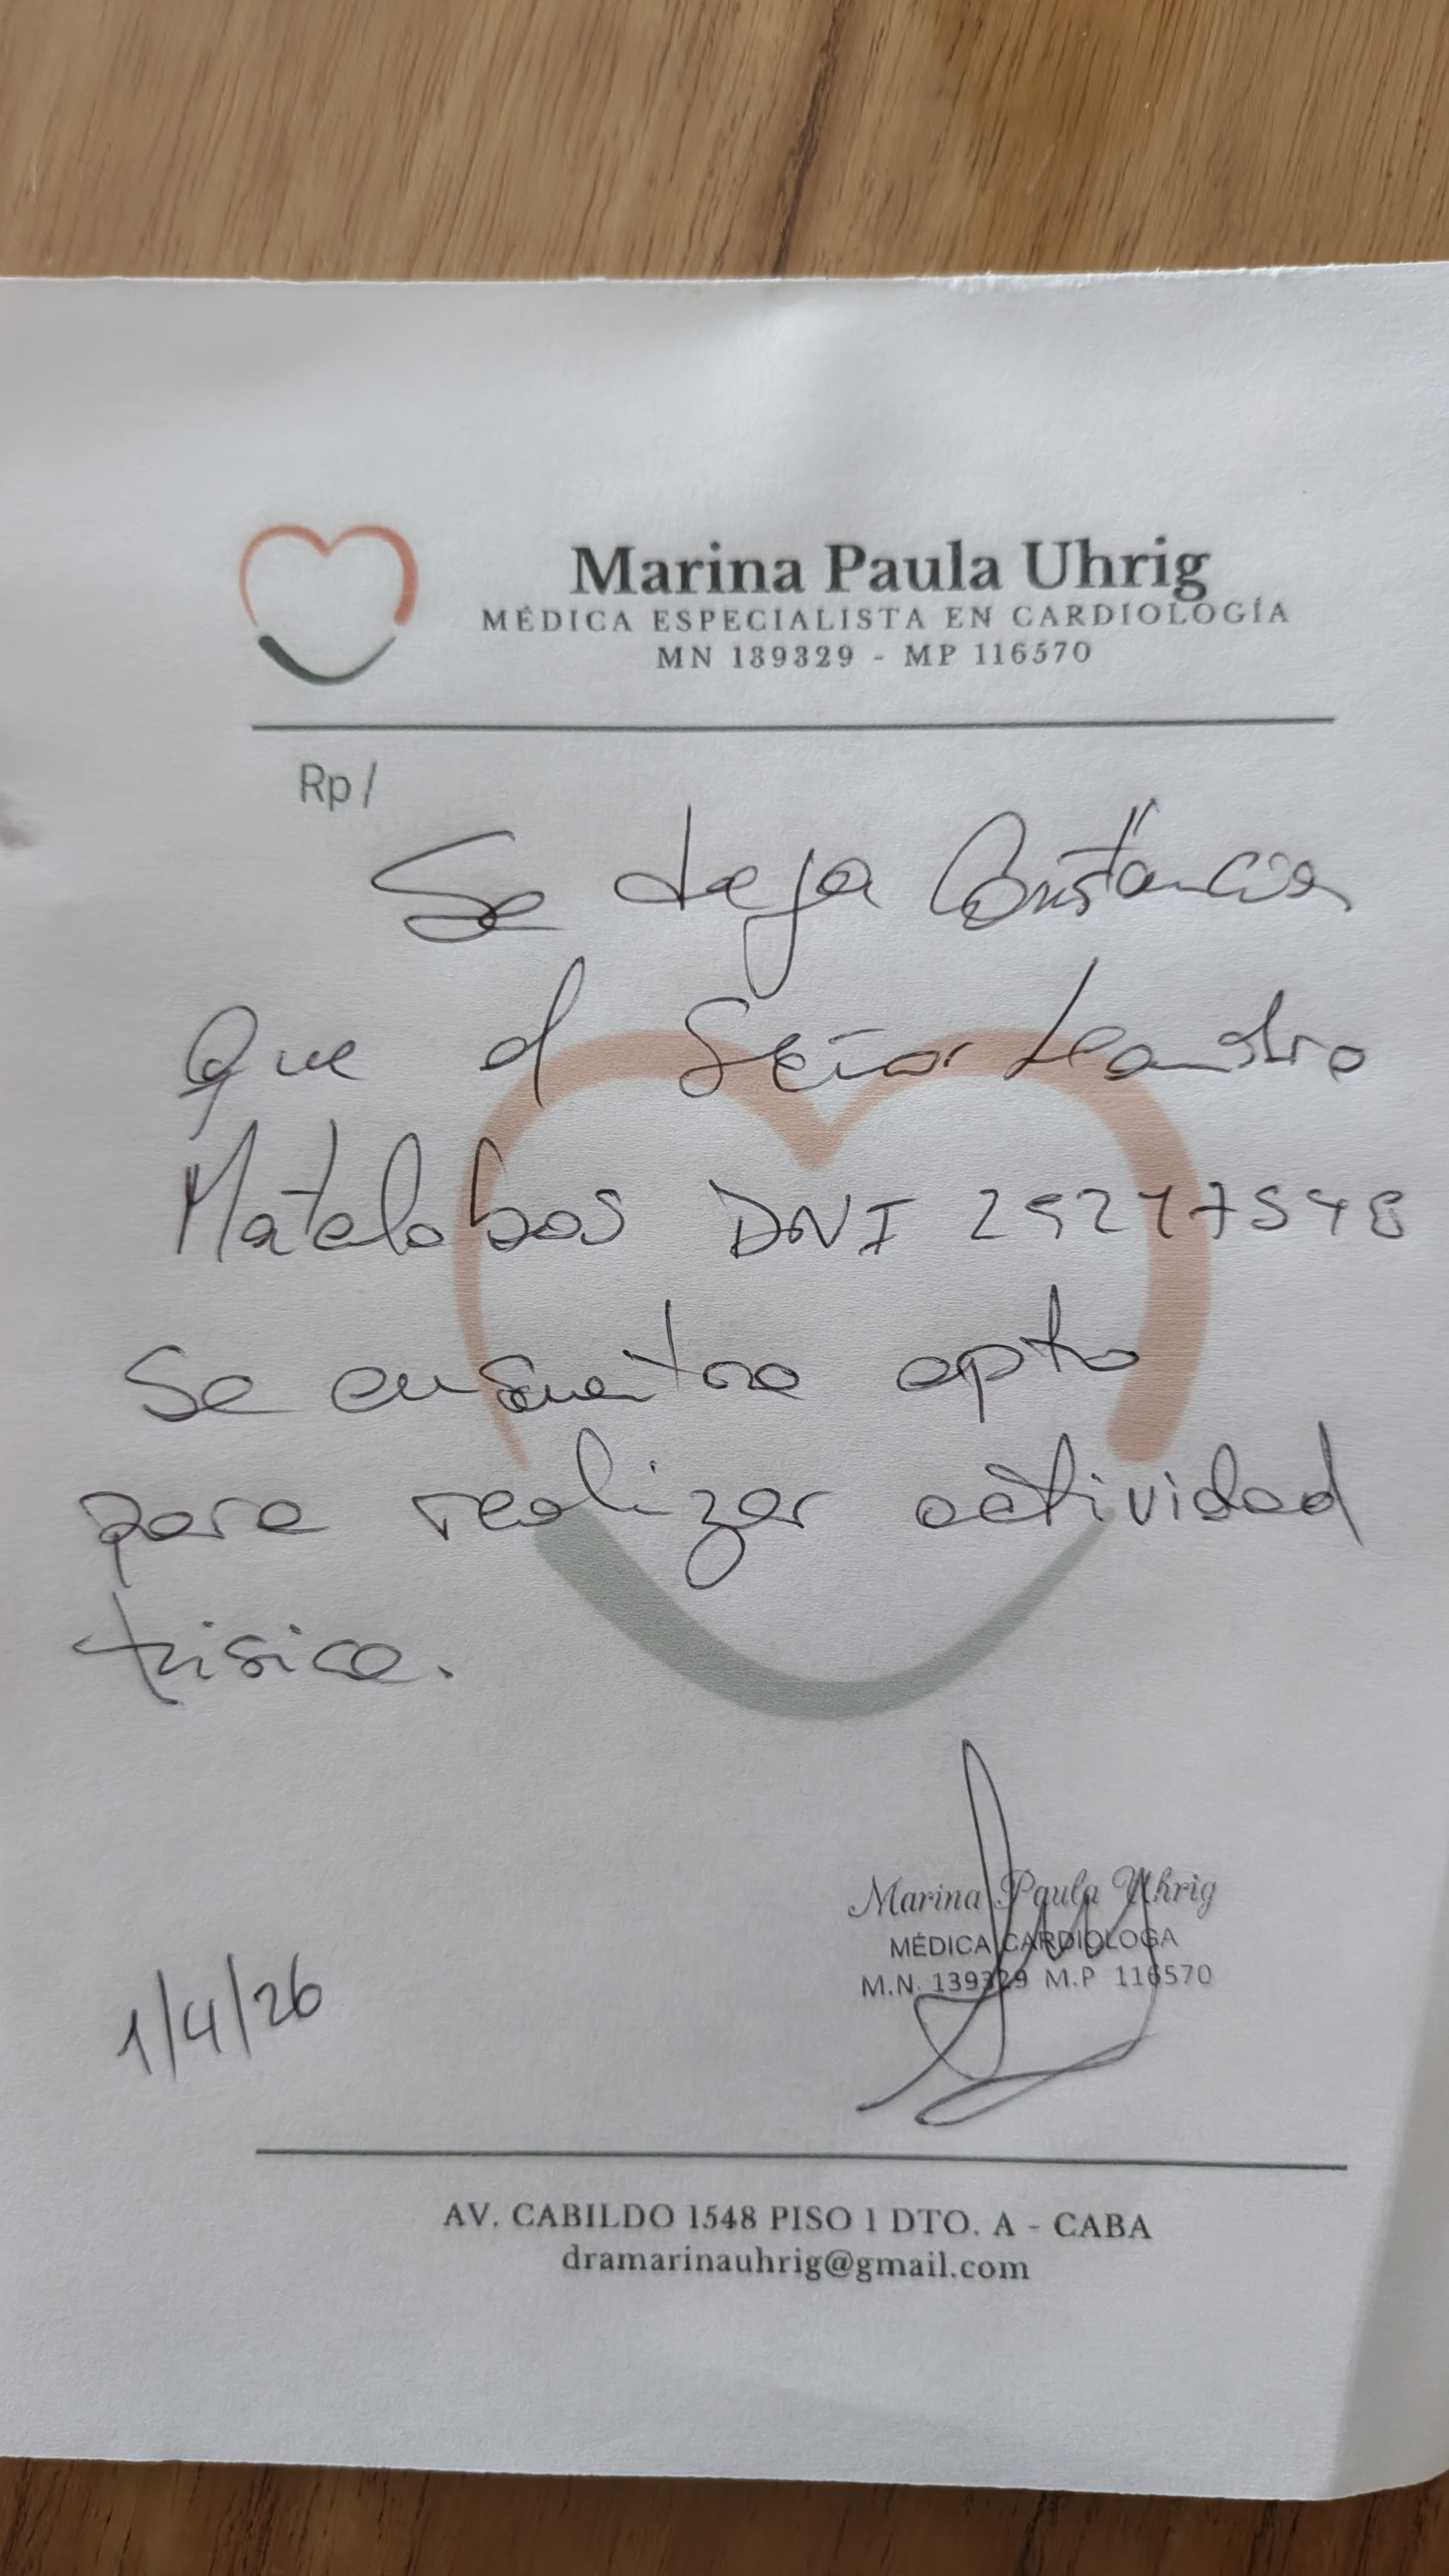 Marina Paula Uhrig
MÉDICA ESPECIALISTA EN CARDIOLOGÍA
MN 139329 - MP 116570
Rp /
Se deja Constancia
Que el Señor Leandro
Matalobos DNI
Se encuentra apto
para realizar actividad
física.
Marina Paula Uhrig
MÉDICA CARDIOLOGA
M.N. 139329 M.P 116570
1/4/26
AV. CABILDO 1548 PISO 1 DTO. A - CABA
dramarinauhrig@gmail.com